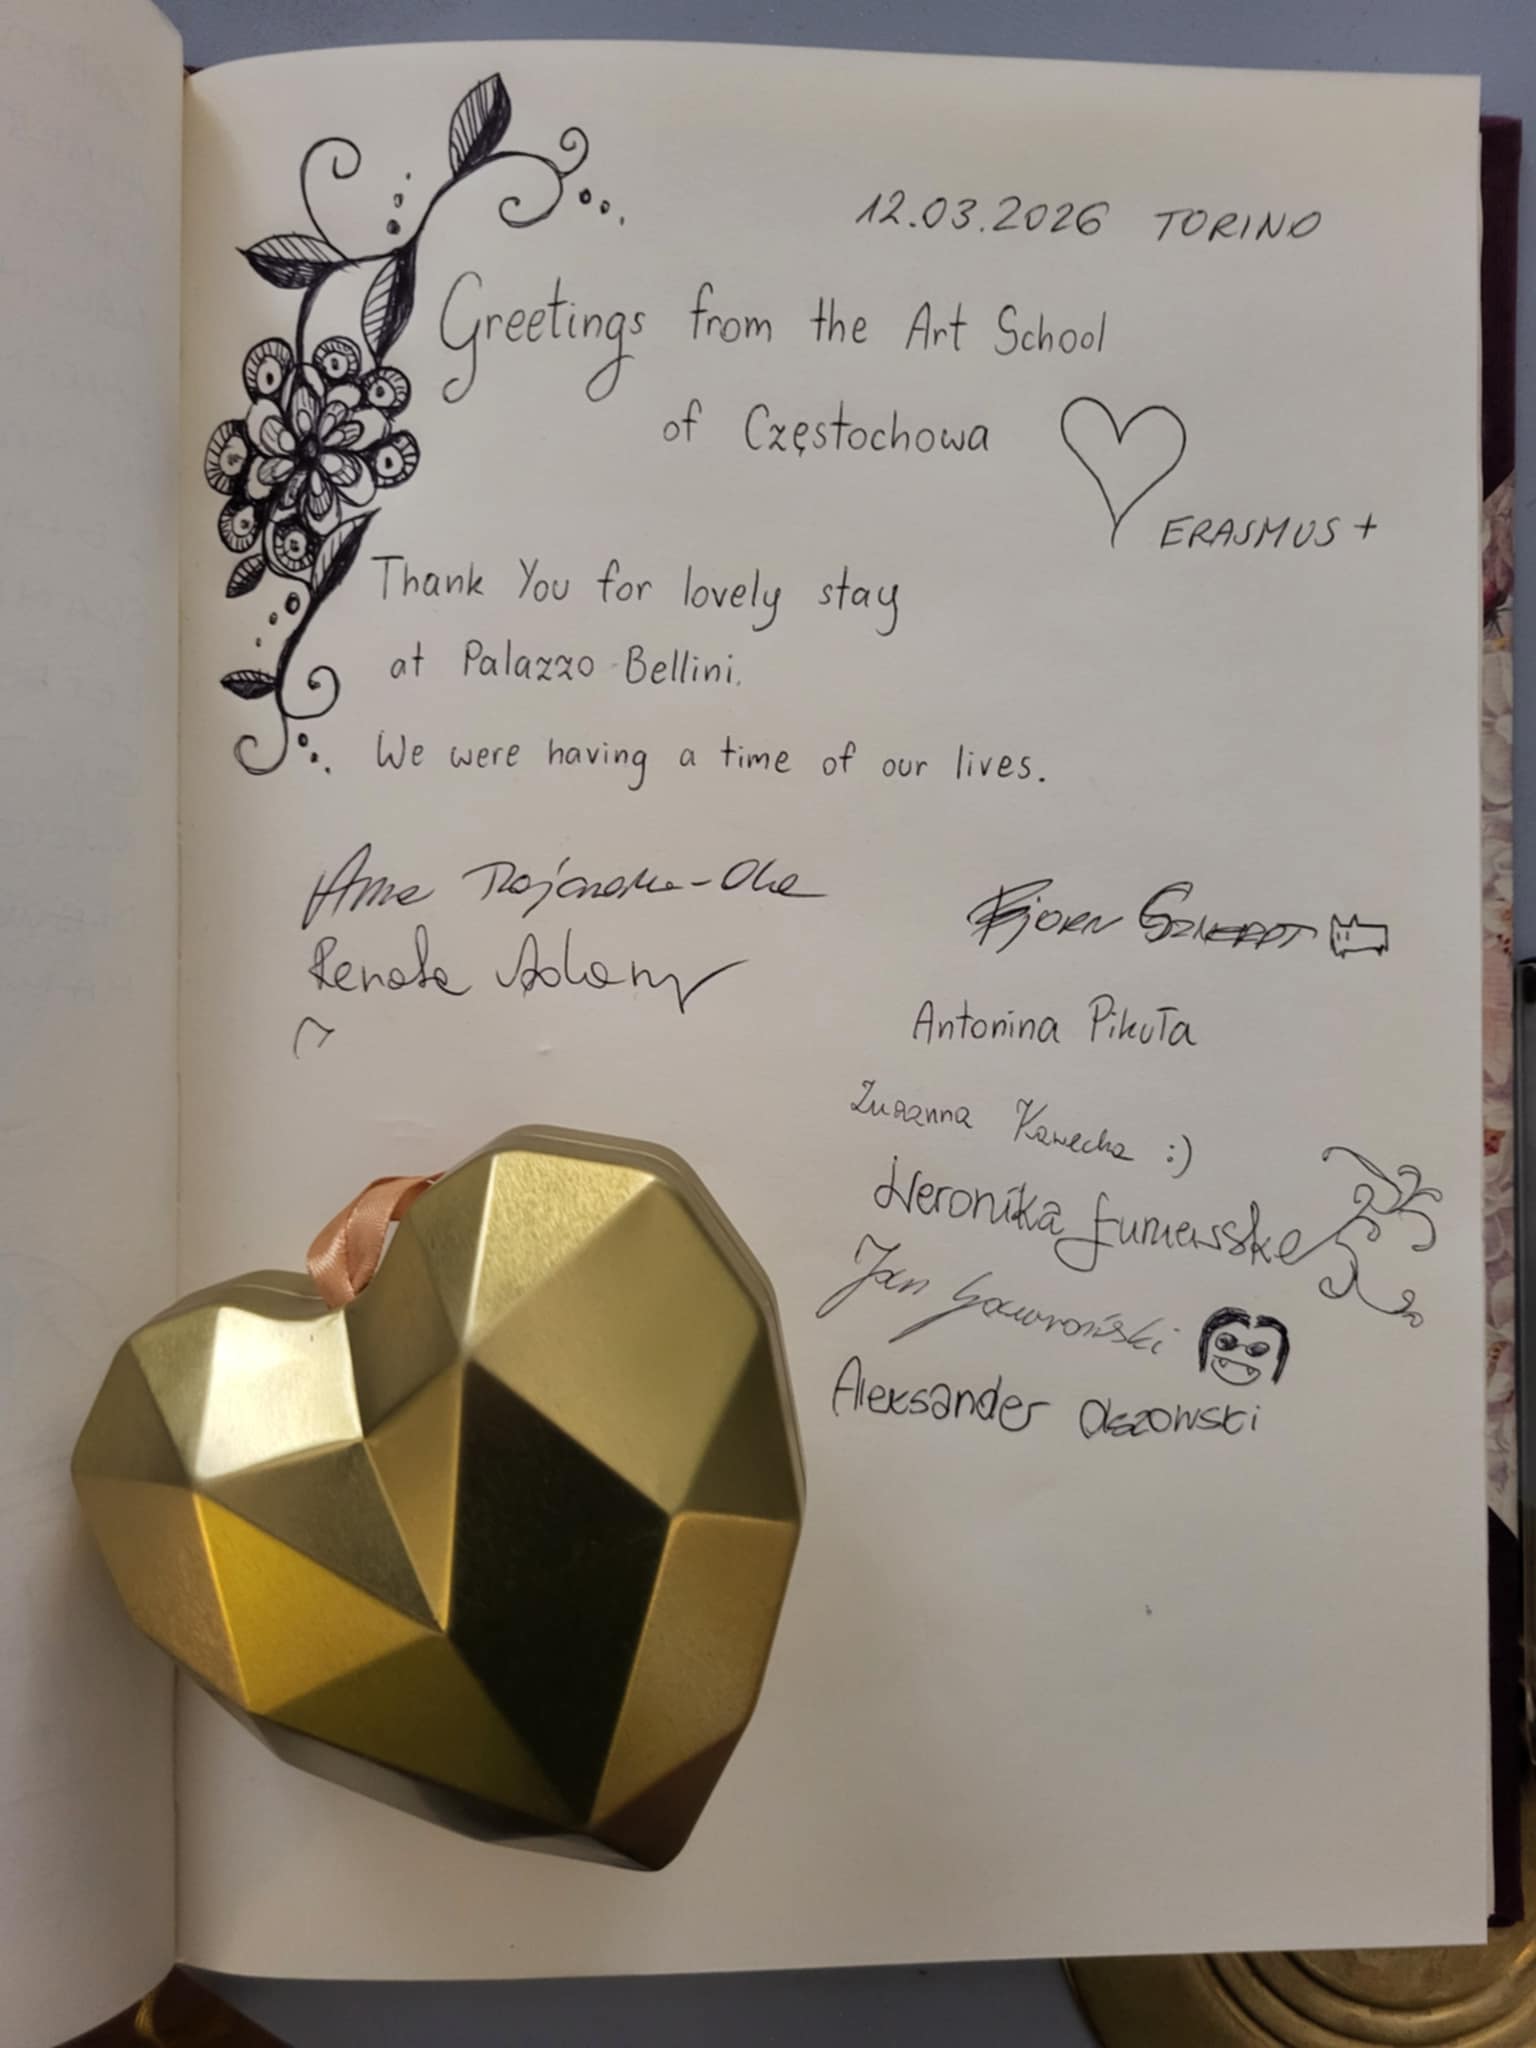 12.03.2026 TORINO
Greetings from the Art School
of Częstochowa
ERASMUS +
Thank You for lovely stay
at Palazzo Bellini.
We were having a time of our lives.
Renata
Bjorn
Antonina Pikuła
Zuzanna Kawecka :)
Weronika
Jan Gaworoński
Aleksander Olszowski